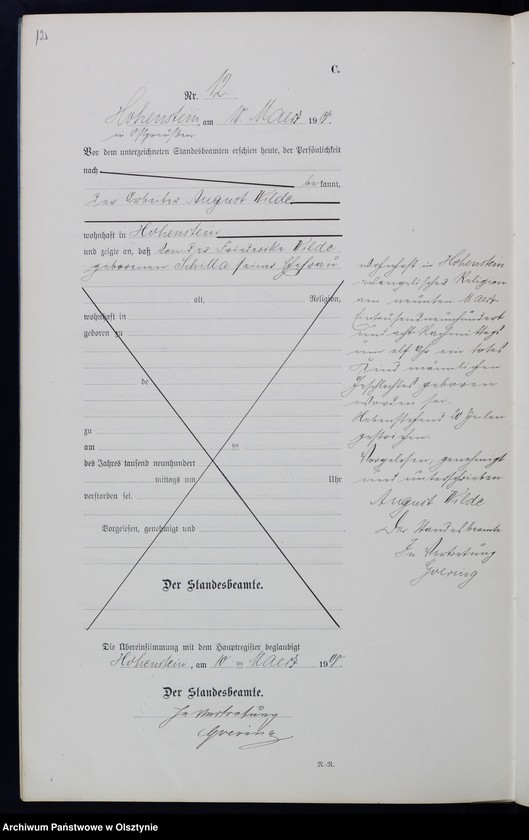 C.
Nr. 12
Hohenstein, am 10 Maerz 1908.
in Ostpreußen
Vor dem unterzeichneten Standesbeamten erschien heute, der Persönlichkeit
nach bekannt,
der Arbeiter August Wilde
wohnhaft in Hohenstein
und zeigte an, daß von der Friederike Wilde
geborenen Schilla seiner Ehefrau
alt, Religion,
wohnhaft in
geboren zu
de
zu
am
des Jahres tausend neunhundert
mittags um Uhr
verstorben sei.
Vorgelesen, genehmigt und
Der Standesbeamte.
wohnhaft in Hohenstein
evangelischer Religion
am neunten Maerz
Eintausendneunhundert
und acht Nachmittags
um elf Uhr ein totes
Kind männlichen
Geschlechtes geboren
worden sei.
Nebenstehend Zeilen
gestrichen.
Vorgelesen, genehmigt
und unterschrieben
August Wilde
Der Standesbeamte
In Vertretung
Goering
Die Übereinstimmung mit dem Hauptregister beglaubigt
Hohenstein, am 10 ten Maerz 1908
Der Standesbeamte.
In Vertretung
Goering
R.-R.
Archiwum Państwowe w Olsztynie